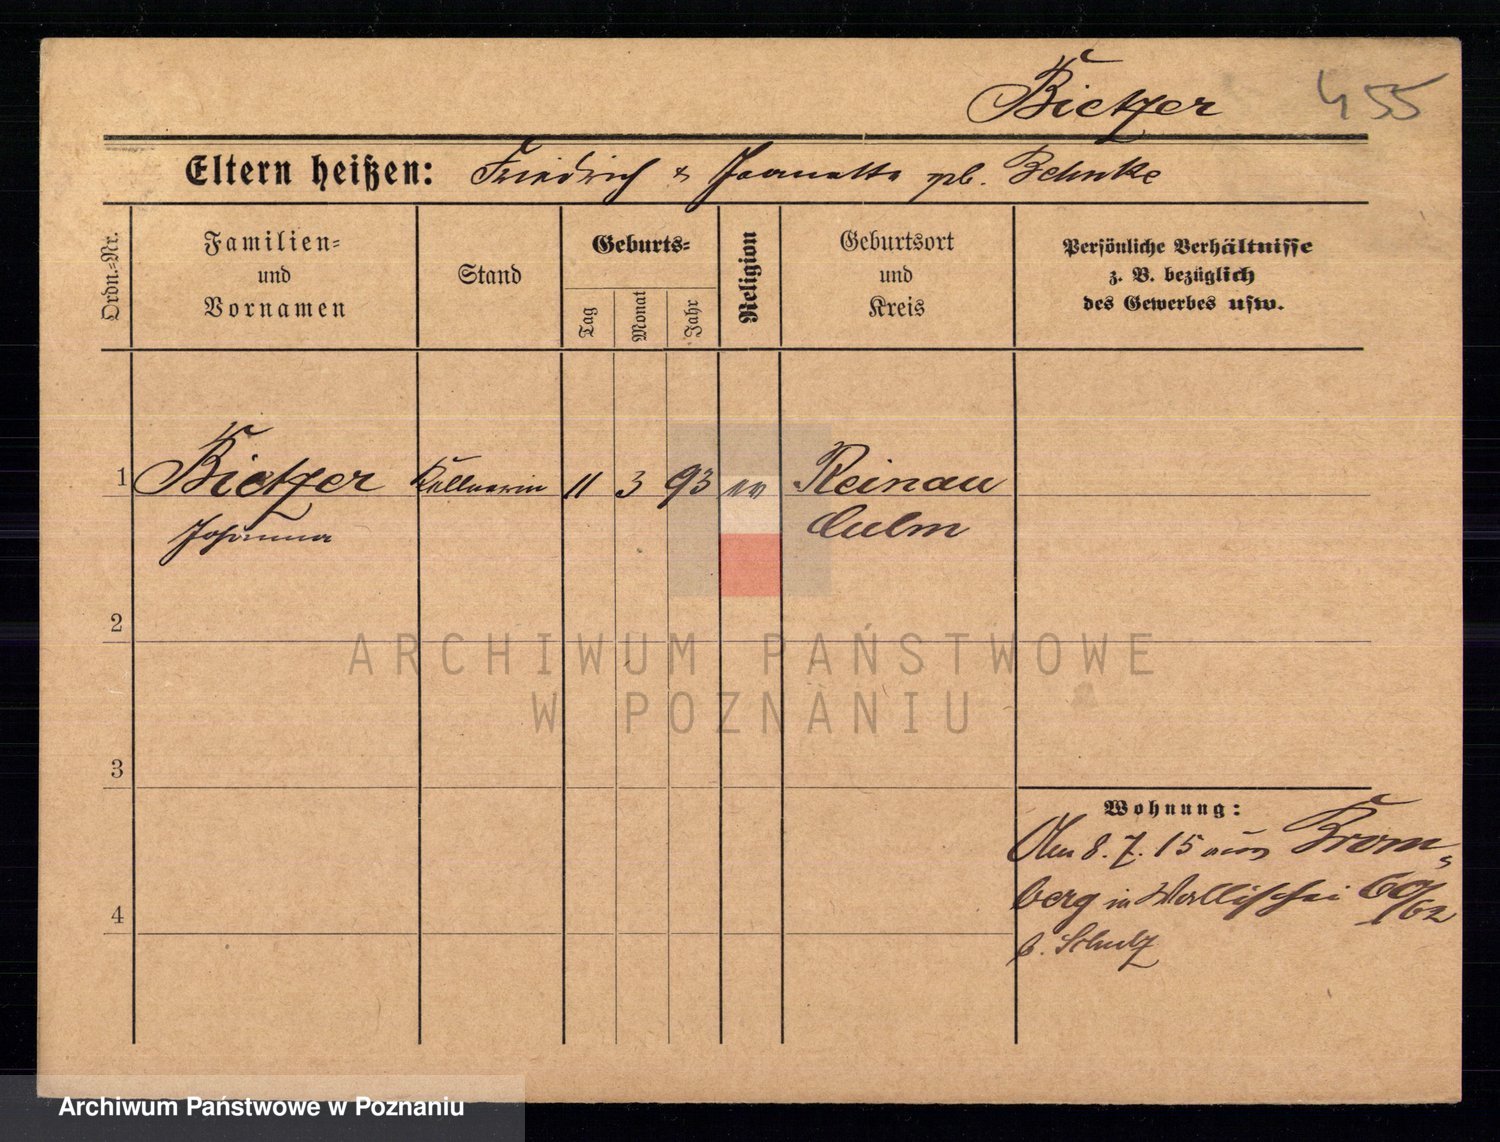 Bietzer 455
Eltern heißen: Friedrich & Jeanette geb. Behnke
Ordn.-Nr.
Familien-
und
Vornamen
Stand
Geburts-
Tag
Monat
Jahr
Religion
Geburtsort
und
Kreis
Persönliche Verhältnisse
z. B. bezüglich
des Gewerbes usw.
1 Bietzer Kellnerin 11 3 93 ev Reinau
Johanna Culm
2
ARCHIWUM PAŃSTWOWE
W POZNANIU
3
Wohnung:
Am 8. 7. 15 aus Brom-
berg in Wallischei 60/62
4
b. Schulz
Archiwum Państwowe w Poznaniu